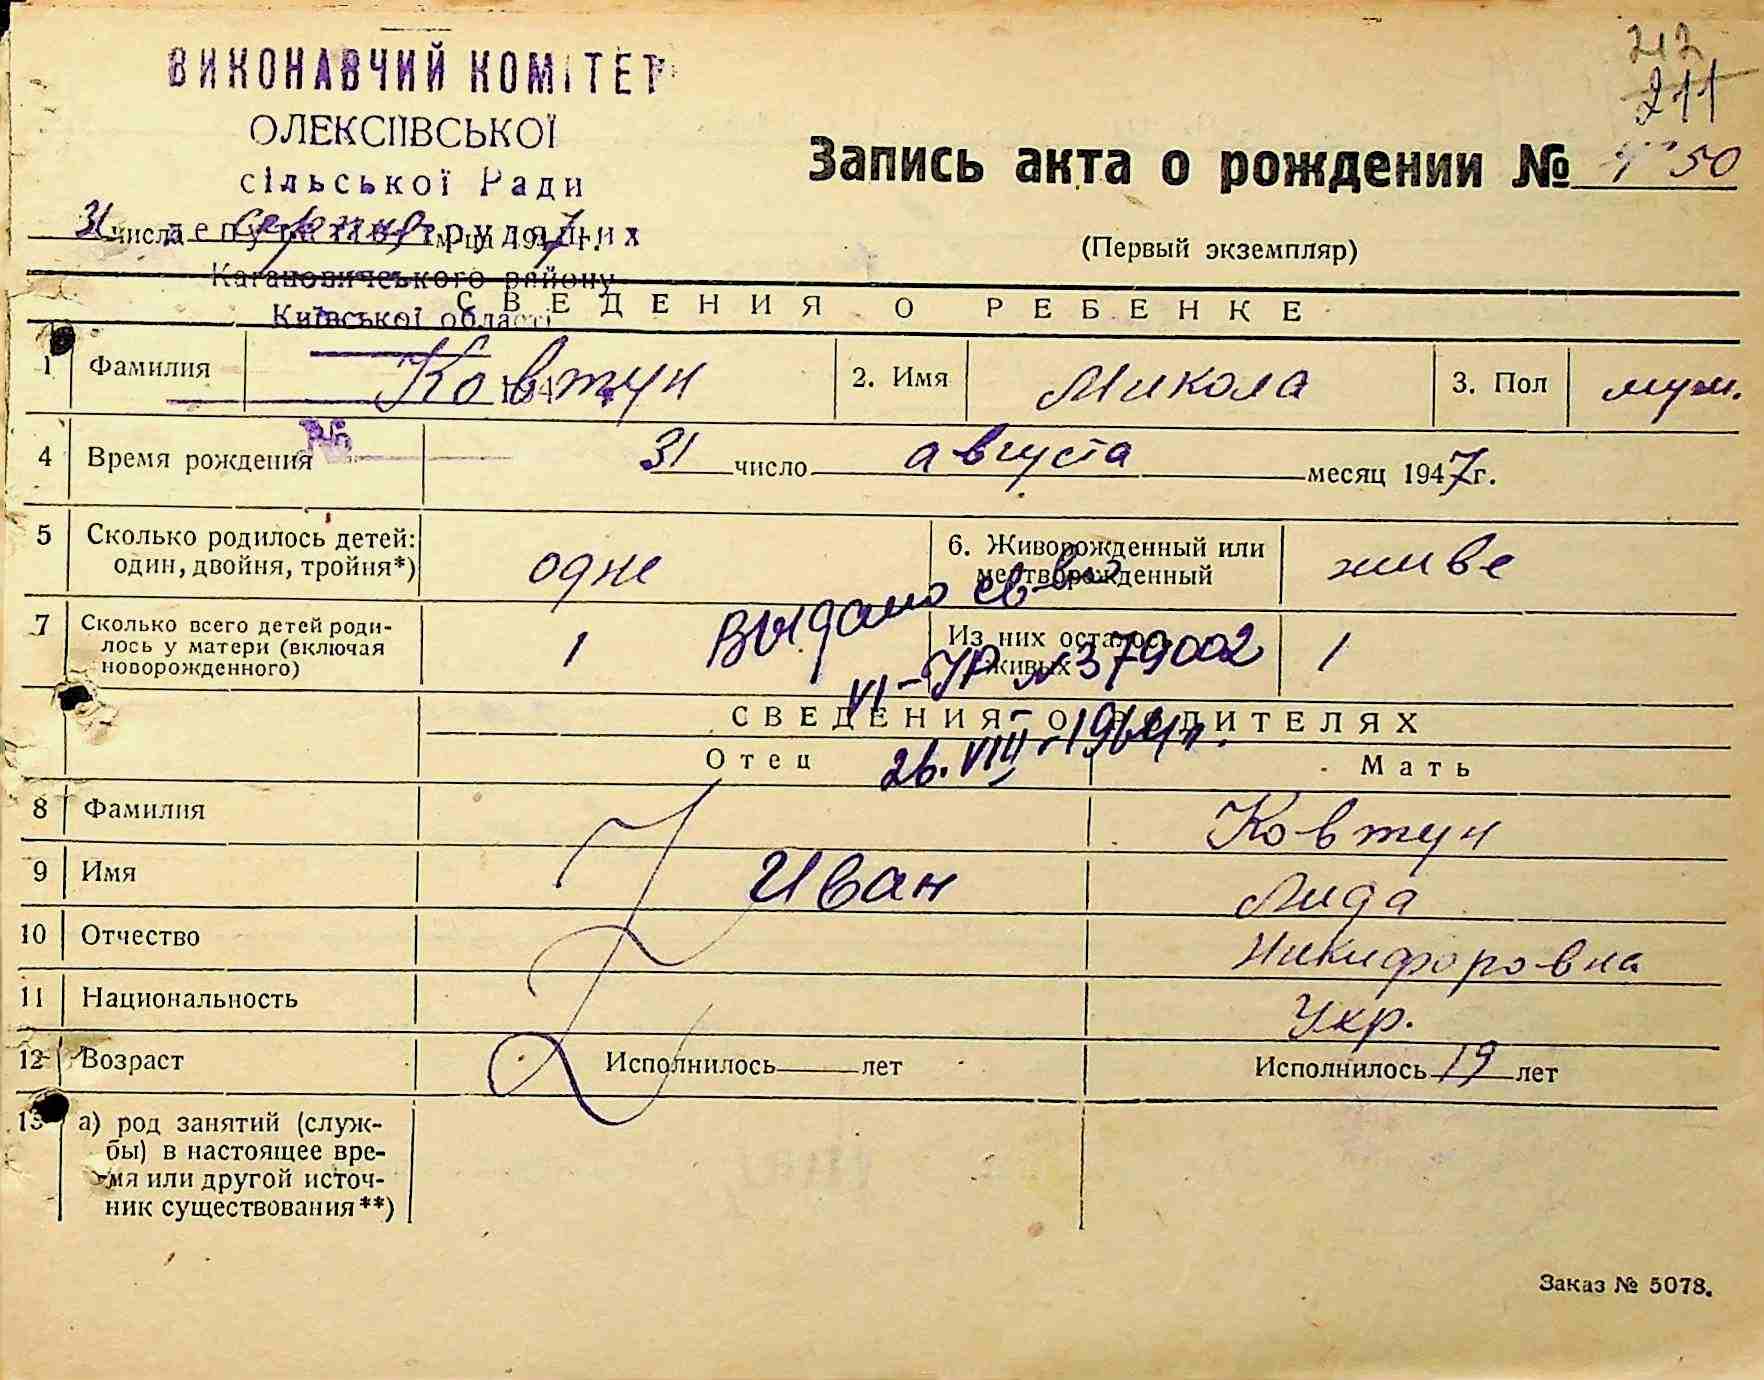 212
211
ВИКОНАВЧИЙ КОМІТЕТ
ОЛЕКСІЇВСЬКОЇ
сільської Ради
депутатів трудящих
Кагановичського району
Київської області
Запись акта о рождении № 50
(Первый экземпляр)
31 числа серпня м-ца 1947 г.
СВЕДЕНИЯ О РЕБЕНКЕ
1 Фамилия Ковтун 2. Имя Микола 3. Пол муж.
№
4 Время рождения 31 число августа месяц 1947 г.
5 Сколько родилось детей: один, двойня, тройня*) одне 6. Живорожденный или мертворожденный живе
7 Сколько всего детей родилось у матери (включая новорожденного) 1 Из них осталось живых 1
Выдано св-во
VI-УР № 379002
26.VIII-1964 г.
СВЕДЕНИЯ О РОДИТЕЛЯХ
Отец Мать
8 Фамилия Ковтун
9 Имя Иван Лида
10 Отчество Никифоровна
11 Национальность Укр.
12 Возраст Исполнилось лет Исполнилось 19 лет
13 а) род занятий (службы) в настоящее время или другой источник существования**)
Заказ № 5078.